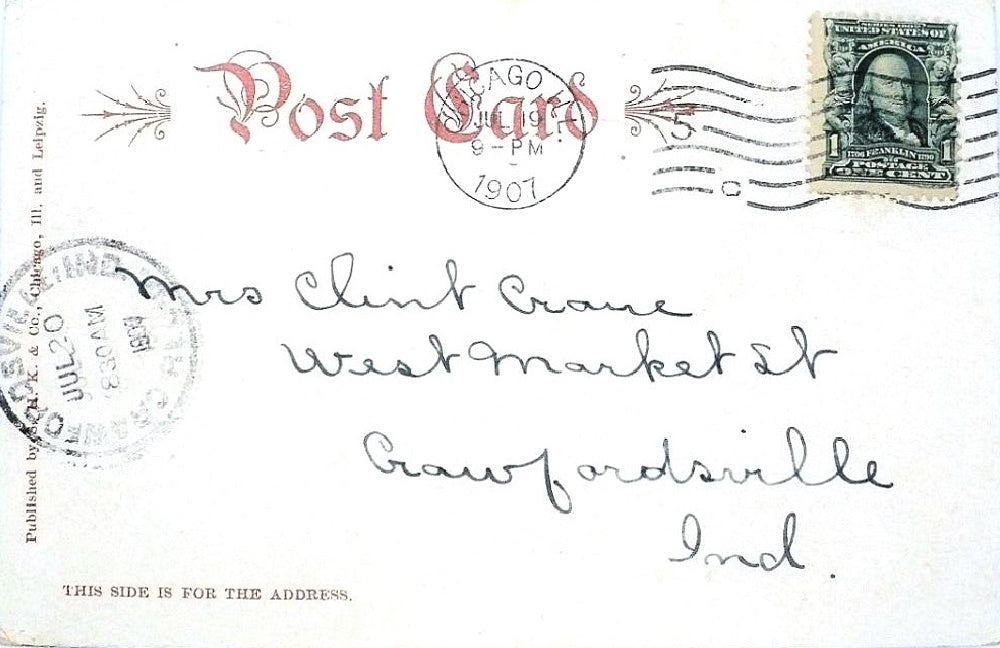 Post Card
CHICAGO, ILL.
JUL 19
9-PM
1907
5
C
SERIES 1902
UNITED STATES OF
AMERICA
1 1706 FRANKLIN 1790 1
POSTAGE
ONE CENT
Mrs Clint Crane
West Market St
Crawfordsville
Ind.
CRAWFORDSVILLE, IND.
JUL 20
830AM
Published by S. H. K. & Co., Chicago, Ill. and Leipzig.
THIS SIDE IS FOR THE ADDRESS.